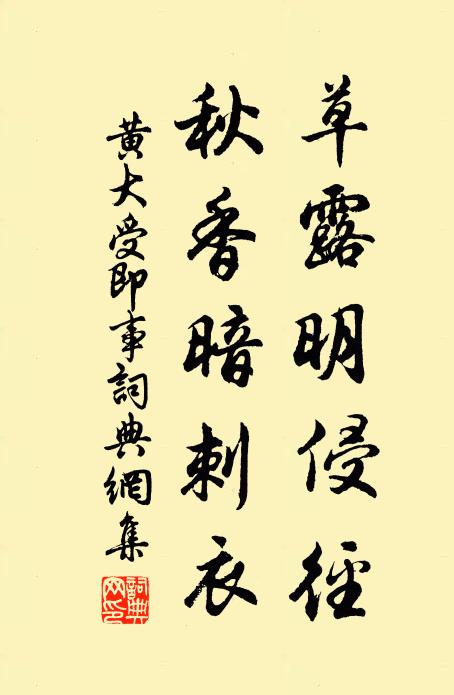 草露明侵徑
秋香暗刺衣
黃大受即事詞典網集
詞典網印